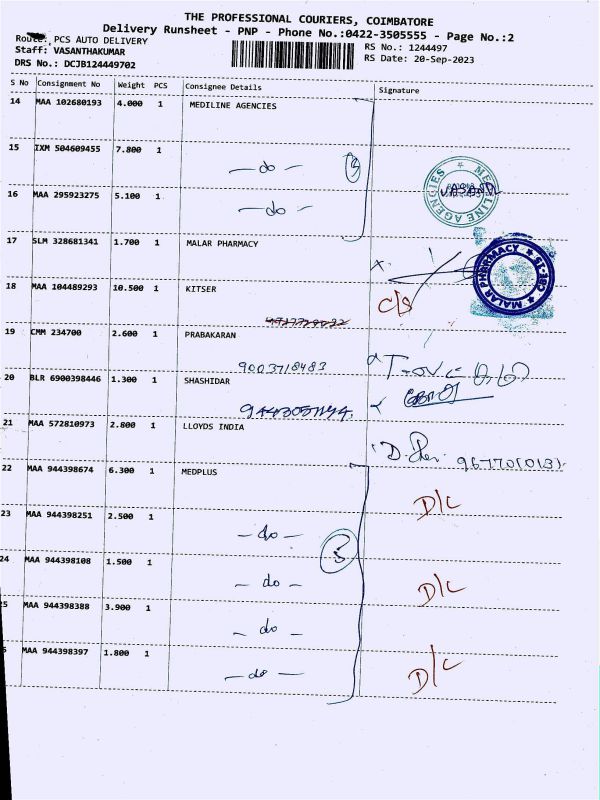 THE PROFESSIONAL COURIERS, COIMBATORE
Delivery Runsheet - PNP - Phone No.:0422-3505555 - Page No.:2
Route: PCS AUTO DELIVERY
RS No.: 1244497
Staff: VASANTHAKUMAR
RS Date: 20-Sep-2023
DRS No.: DCJB124449702
S No Consignment No Weight PCS Consignee Details Signature
14 MAA 102680193 4.000 1 MEDILINE AGENCIES
15 IXM 504609455 7.800 1
- do - 3
MEDILINE AGENCIES
16 MAA 295923275 5.100 1
- do -
17 SLM 328681341 1.700 1 MALAR PHARMACY
MALAR PHARMACY
18 MAA 104489293 10.500 1 KITSER
C/S
19 CMM 234700 2.600 1 PRABAKARAN
9003718483
20 BLR 6900398446 1.300 1 SHASHIDAR
21 MAA 572810973 2.800 1 LLOYDS INDIA
22 MAA 944398674 6.300 1 MEDPLUS
D/C
23 MAA 944398251 2.500 1
- do - 5
24 MAA 944398108 1.500 1
- do - D/C
25 MAA 944398388 3.900 1
- do -
MAA 944398397 1.800 1
- do - D/C